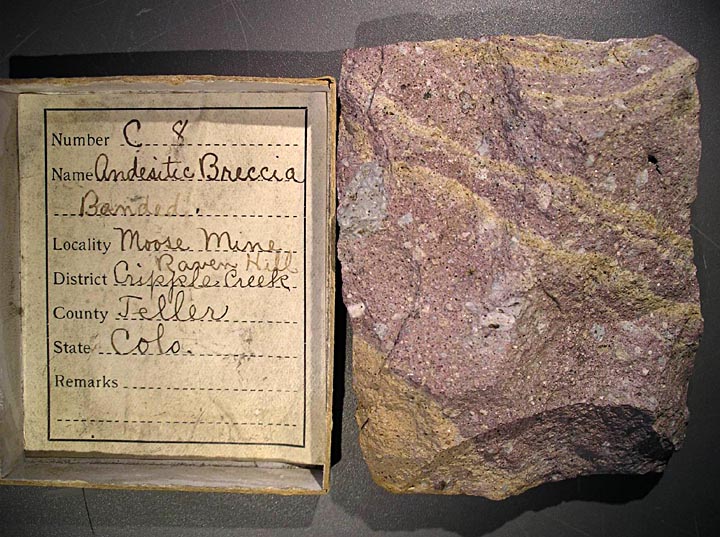 Number C 8
Name Andesitic Breccia
Banded.
Locality Moose Mine
Raven Hill
District Cripple Creek
County Teller
State Colo.
Remarks